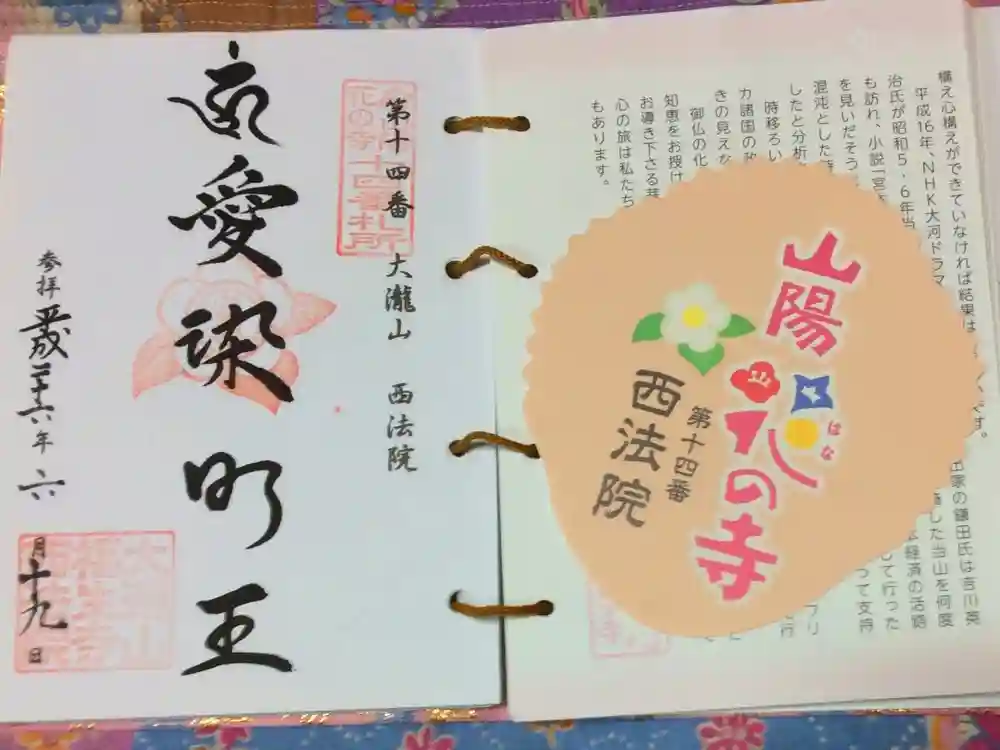 構え心構えができていなければ結果は
平成16年、NHK大河ドラマ
出家の鎌田氏は吉川英
治氏が昭和5・6年当
した当山を何度
も訪れ、小説「宮
経済の活路
を見いだそう
して行った
混沌とした
って支持
したと分析
時移ろい
カ諸国の政
きの見えな
御仏の化
知恵をお授け
お導き下さる
心の旅は私たち
もあります。
山陽
花の寺
はな
第十四番
西法院
第十四番 大瀧山 西法院
花の寺十四番札所
愛染明王
参拝 平成二十六年 六月十九日